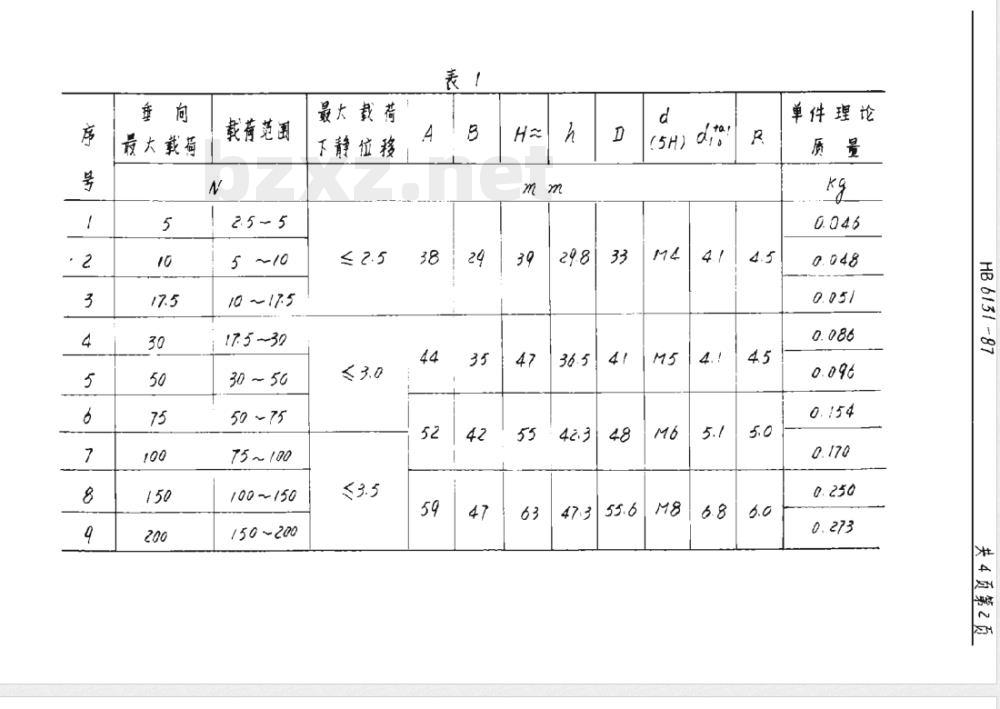 表 1
序号 垂向最大载荷 载荷范围 最大载荷下静位移 A B H≈ h D d(5H) d₁⁺⁰·¹₀ R 单件理论质量
N mm kg
1 5 2.5~5 ≤2.5 38 29 39 29.8 33 M4 4.1 4.5 0.046
2 10 5~10 0.048
3 17.5 10~17.5 0.051
4 30 17.5~30 ≤3.0 44 35 47 36.5 41 M5 4.1 4.5 0.086
5 50 30~50 0.096
6 75 50~75 52 42 55 42.3 48 M6 5.1 5.0 0.154
7 100 75~100 ≤3.5 0.170
8 150 100~150 59 47 63 47.3 55.6 M8 6.8 6.0 0.250
9 200 150~200 0.273
HB 6131-87
共4页第2页
bzxz.net